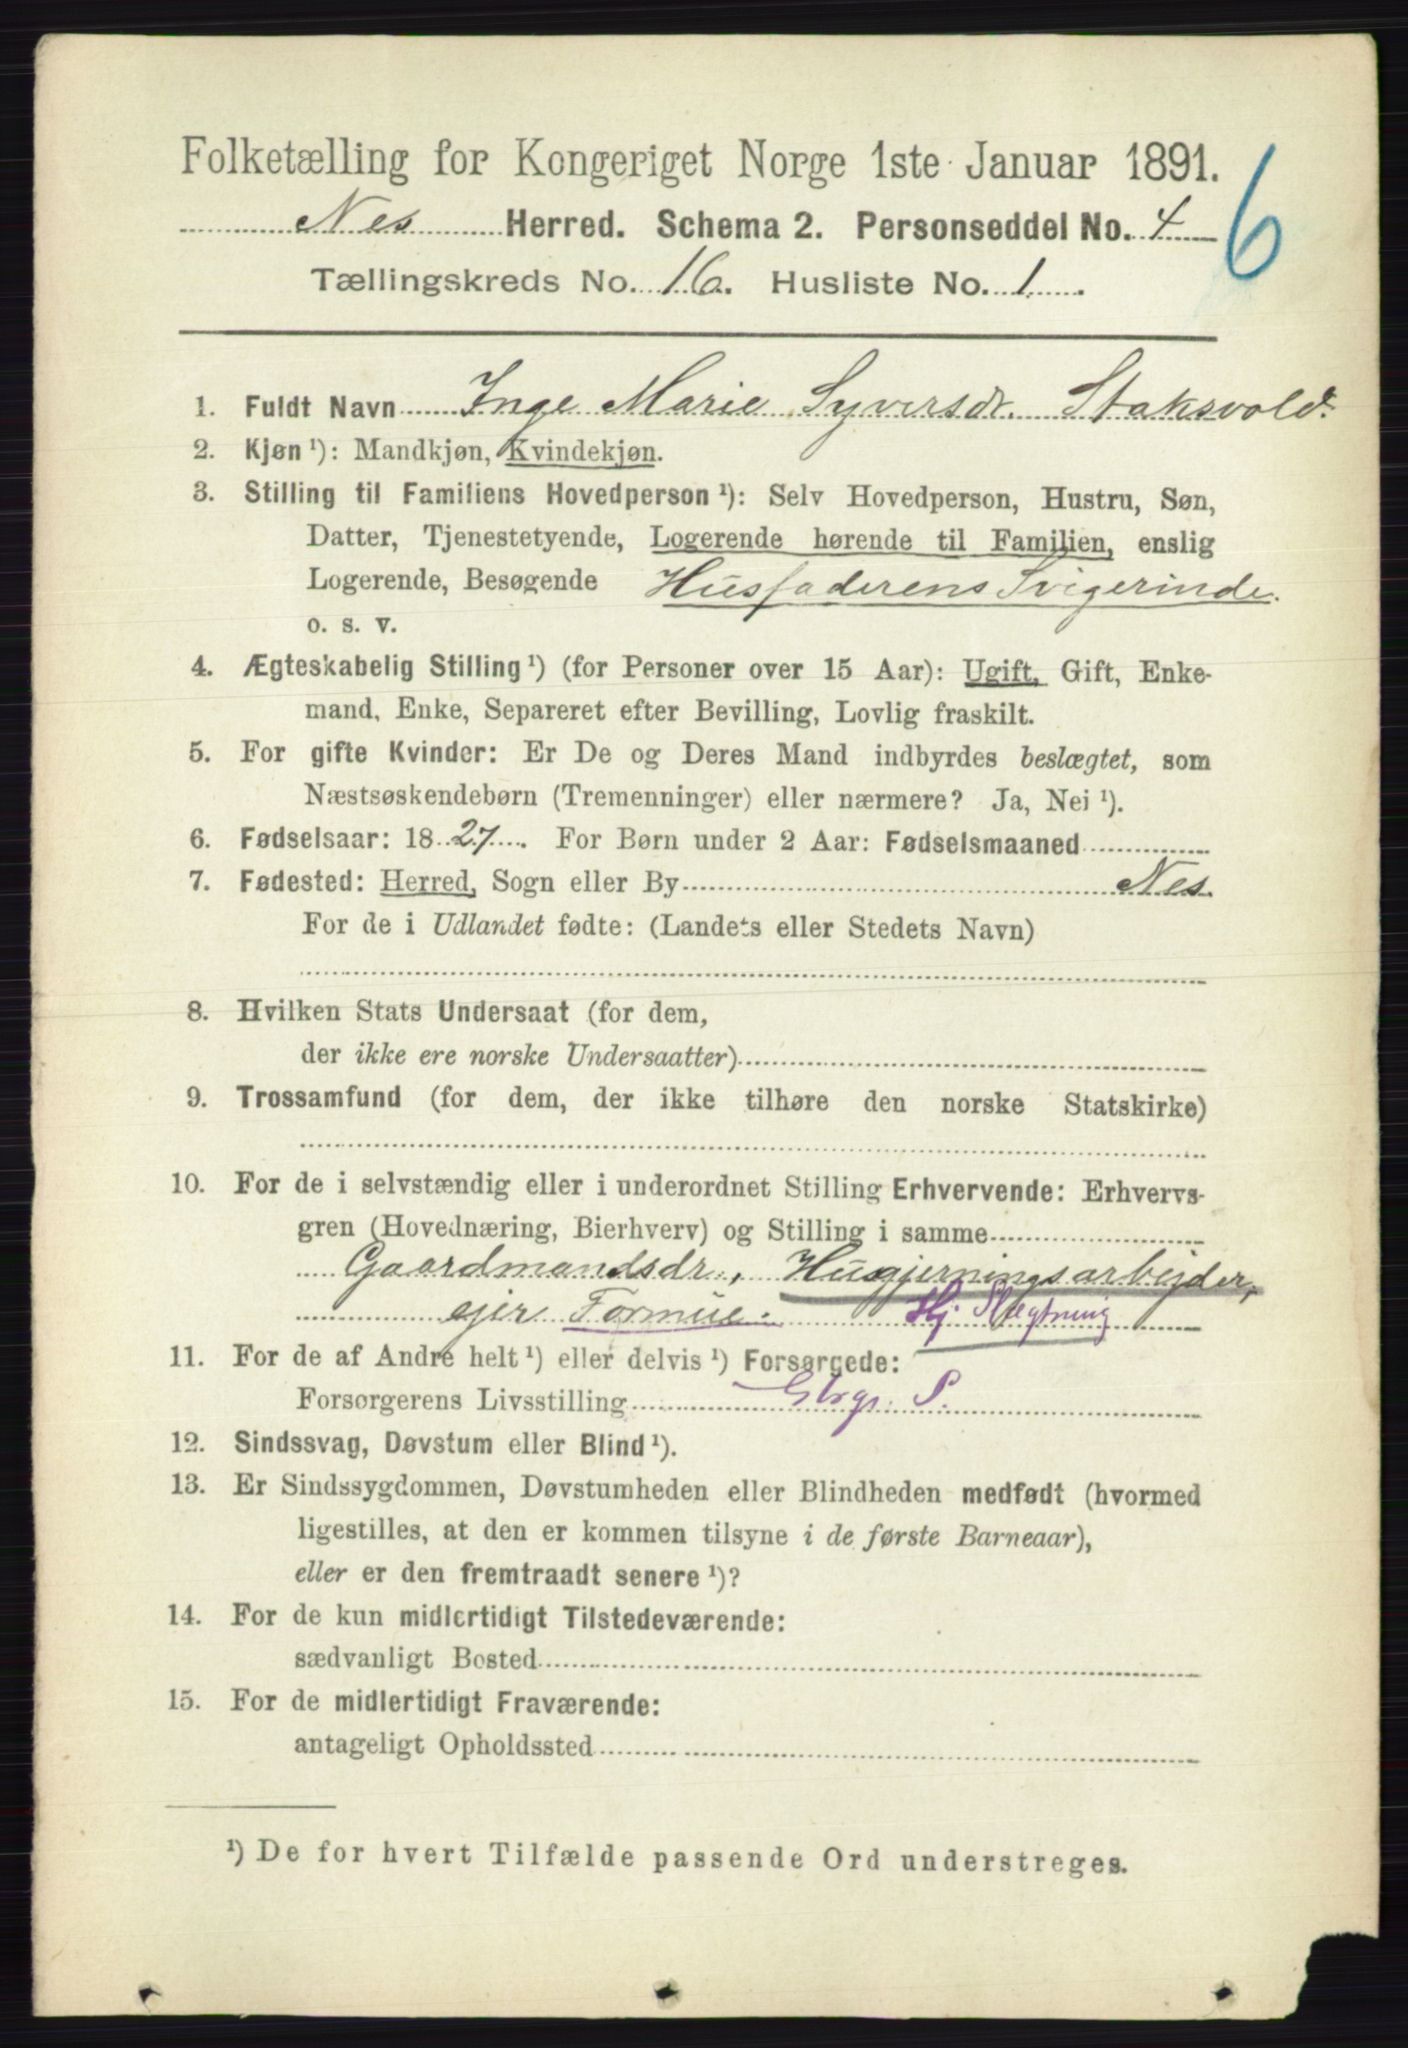 Folketælling for Kongeriget Norge 1ste Januar 1891.
6
Nes Herred. Schema 2. Personseddel No. 4
Tællingskreds No. 16. Husliste No. 1
1. Fuldt Navn Inge Marie Syversdr. Staksvold.
2. Kjøn ¹): Mandkjøn, Kvindekjøn.
3. Stilling til Familiens Hovedperson ¹): Selv Hovedperson, Hustru, Søn,
Datter, Tjenestetyende, Logerende hørende til Familien, enslig
Logerende, Besøgende Husfaderens Svigerinde.
o. s. v.
4. Ægteskabelig Stilling ¹) (for Personer over 15 Aar): Ugift, Gift, Enke-
mand, Enke, Separeret efter Bevilling, Lovlig fraskilt.
5. For gifte Kvinder: Er De og Deres Mand indbyrdes beslægtet, som
Næstsøskendebørn (Tremenninger) eller nærmere? Ja, Nei ¹).
6. Fødselsaar: 1827. For Børn under 2 Aar: Fødselsmaaned
7. Fødested: Herred, Sogn eller By Nes.
For de i Udlandet fødte: (Landets eller Stedets Navn)
8. Hvilken Stats Undersaat (for dem,
der ikke ere norske Undersaatter)
9. Trossamfund (for dem, der ikke tilhøre den norske Statskirke)
10. For de i selvstændig eller i underordnet Stilling Erhvervende: Erhvervs-
gren (Hovednæring, Bierhverv) og Stilling i samme
Gaardmandsdr., Husgjerningsarbejder,
ejer Formue. Hj. Slægtning
11. For de af Andre helt ¹) eller delvis ¹) Forsørgede:
Forsørgerens Livsstilling Gbrgr. S.
12. Sindssvag, Døvstum eller Blind ¹).
13. Er Sindssygdommen, Døvstumheden eller Blindheden medfødt (hvormed
ligestilles, at den er kommen tilsyne i de første Barneaar),
eller er den fremtraadt senere ¹)?
14. For de kun midlertidigt Tilstedeværende:
sædvanligt Bosted
15. For de midlertidigt Fraværende:
antageligt Opholdssted
¹) De for hvert Tilfælde passende Ord understreges.